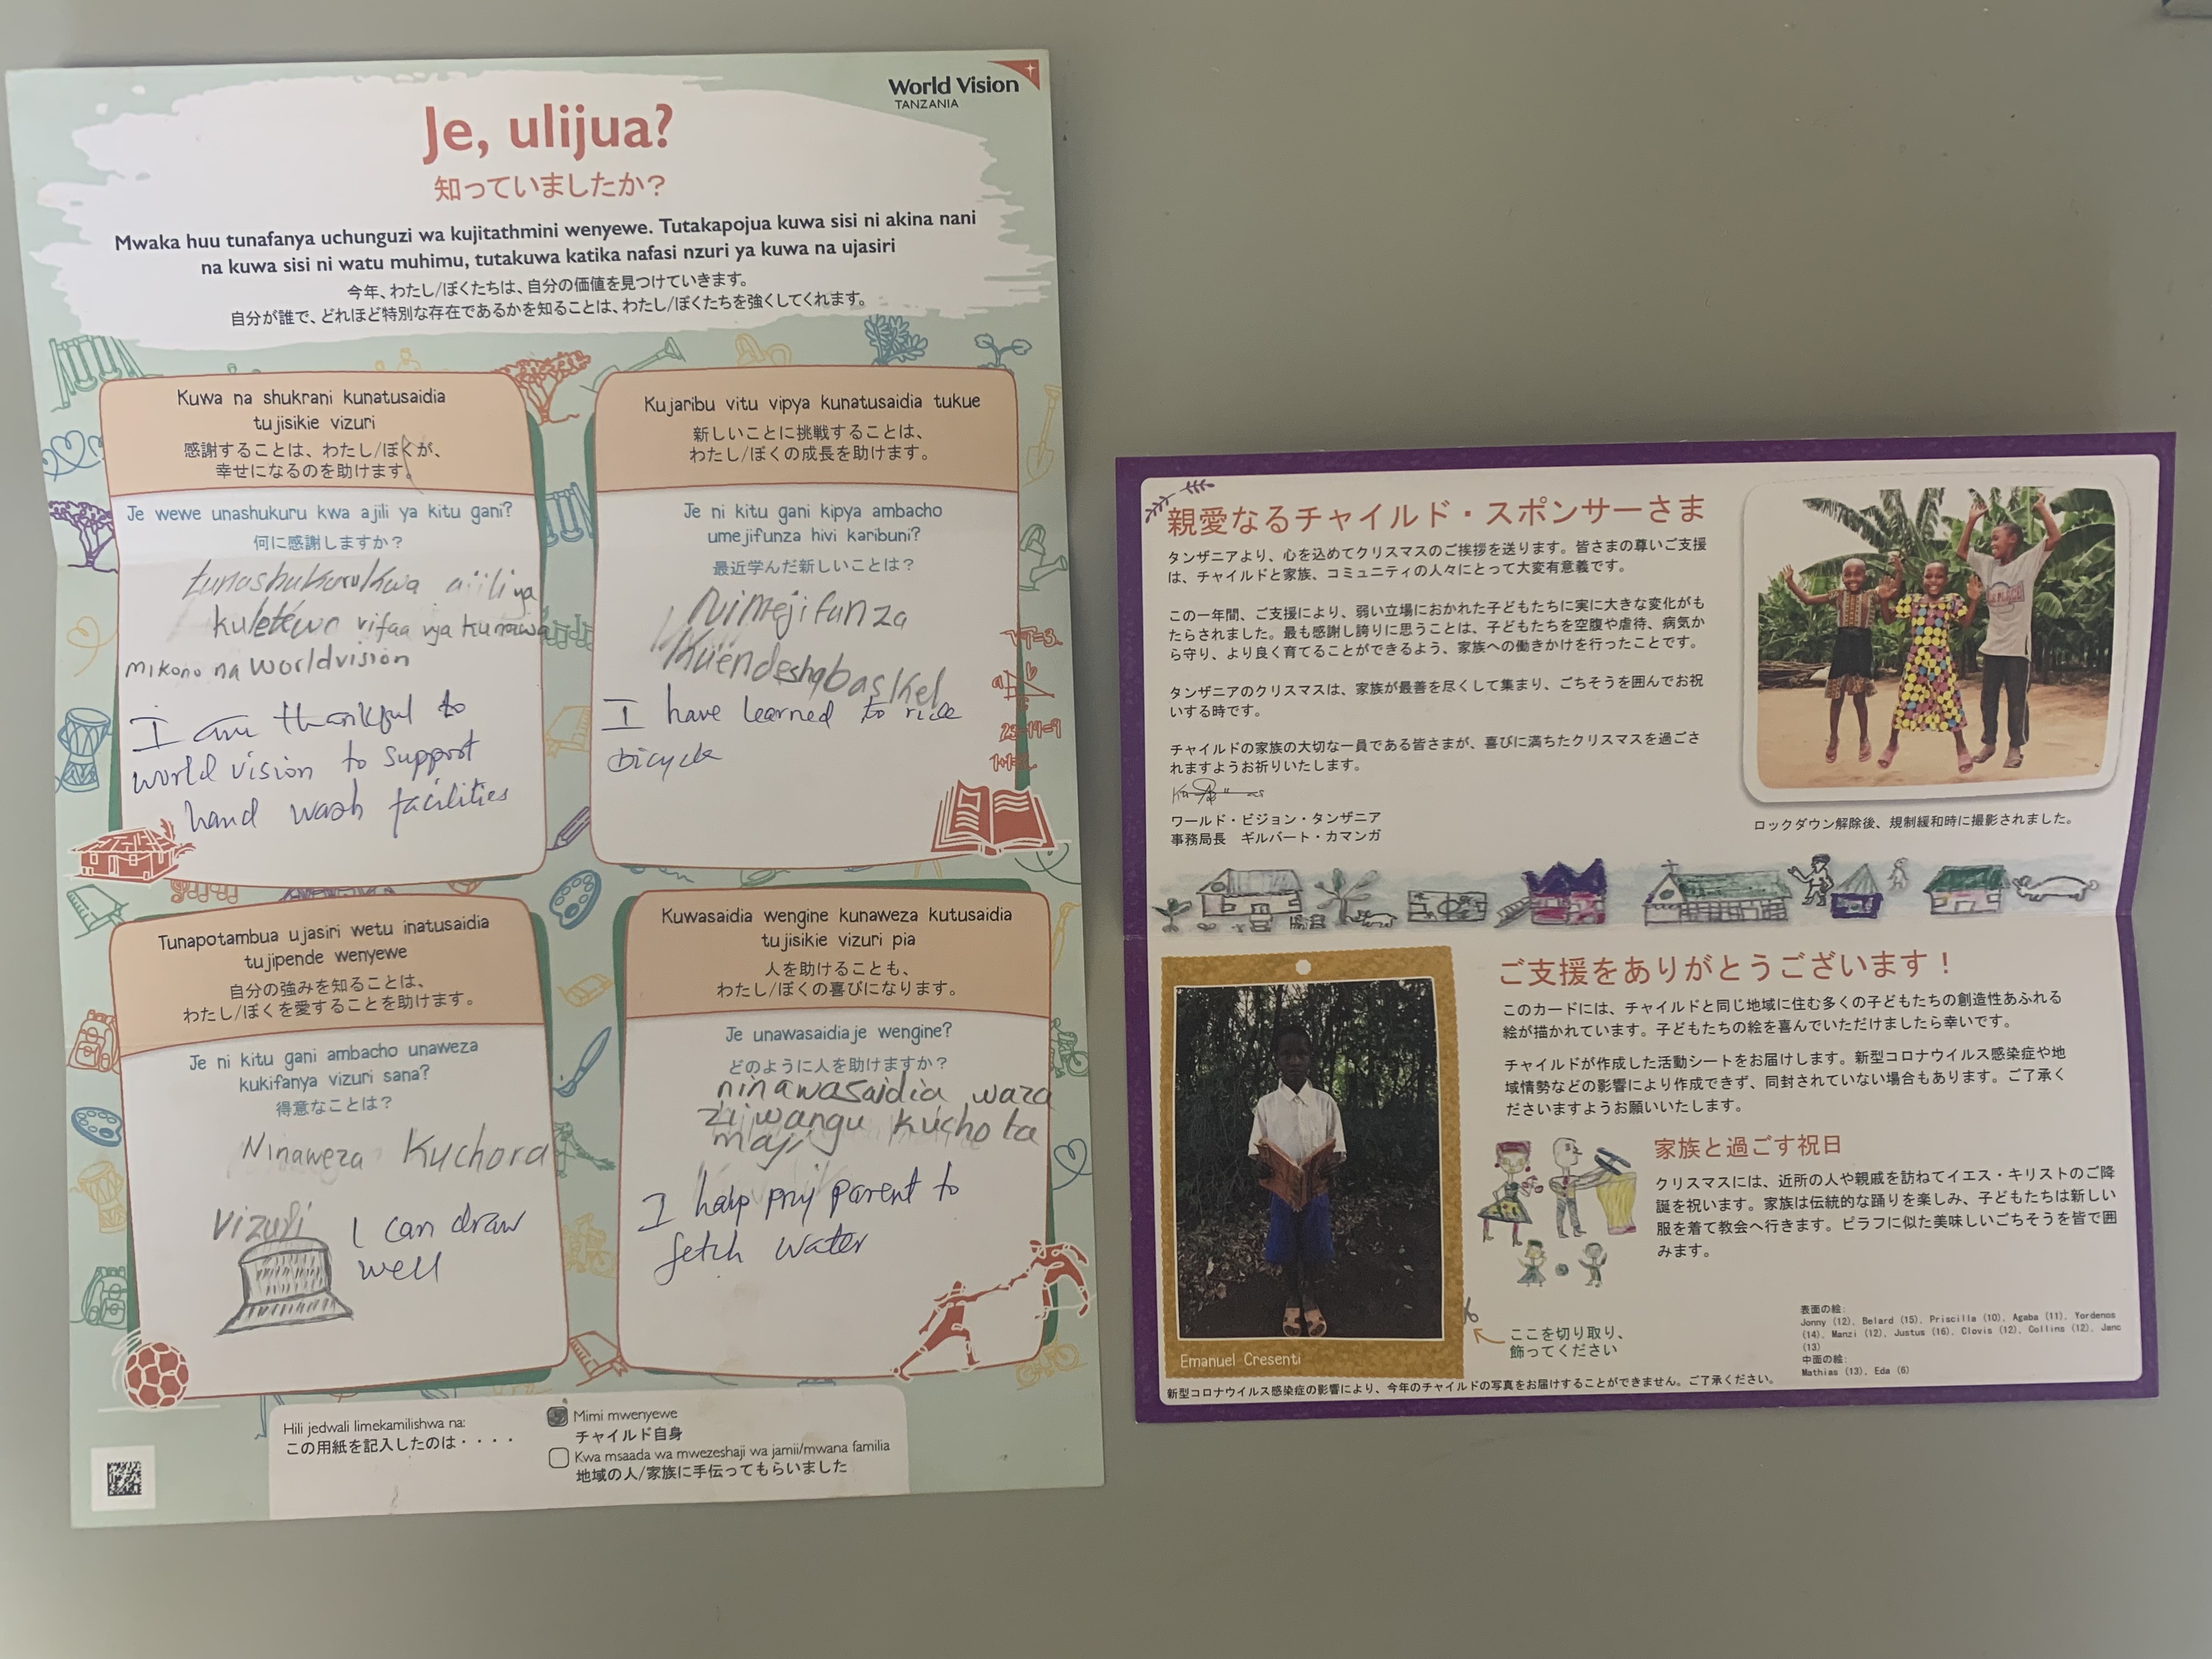 World Vision
TANZANIA
Je, ulijua?
知っていましたか?
Mwaka huu tunafanya uchunguzi wa kujitathmini wenyewe. Tutakapojua kuwa sisi ni akina nani
na kuwa sisi ni watu muhimu, tutakuwa katika nafasi nzuri ya kuwa na ujasiri
今年、わたし/ぼくたちは、自分の価値を見つけていきます。
自分が誰で、どれほど特別な存在であるかを知ることは、わたし/ぼくたちを強くしてくれます。
Kuwa na shukrani kunatusaidia
tujisikie vizuri
感謝することは、わたし/ぼくが、
幸せになるのを助けます。
Je wewe unashukuru kwa ajili ya kitu gani?
何に感謝しますか?
tunashukuru kwa ajili ya
kuletewa vifaa vya kunawa
mikono na worldvision
I am thankful to
world vision to support
hand wash facilities
Kujaribu vitu vipya kunatusaidia tukue
新しいことに挑戦することは、
わたし/ぼくの成長を助けます。
Je ni kitu gani kipya ambacho
umejifunza hivi karibuni?
最近学んだ新しいことは?
Nimejifunza
Kuendesha baskel
I have learned to ride
bicycle
Tunapotambua ujasiri wetu inatusaidia
tujipende wenyewe
自分の強みを知ることは、
わたし/ぼくを愛することを助けます。
Je ni kitu gani ambacho unaweza
kukifanya vizuri sana?
得意なことは?
Ninaweza Kuchora
vizuri
I can draw
well
Kuwasaidia wengine kunaweza kutusaidia
tujisikie vizuri pia
人を助けることも、
わたし/ぼくの喜びになります。
Je unawasaidiaje wengine?
どのように人を助けますか?
ninawasaidia waza
zi wangu kuchota
maji
I help my parent to
fetch water
Hili jedwali limekamilishwa na:
この用紙を記入したのは・・・・
Mimi mwenyewe
チャイルド自身
Kwa msaada wa mwezeshaji wa jamii/mwana familia
地域の人/家族に手伝ってもらいました
親愛なるチャイルド・スポンサーさま
タンザニアより、心を込めてクリスマスのご挨拶を送ります。皆さまの尊いご支援
は、チャイルドと家族、コミュニティの人々にとって大変有意義です。
この一年間、ご支援により、弱い立場におかれた子どもたちに実に大きな変化がも
たらされました。最も感謝し誇りに思うことは、子どもたちを空腹や虐待、病気か
ら守り、より良く育てることができるよう、家族への働きかけを行ったことです。
タンザニアのクリスマスは、家族が最善を尽くして集まり、ごちそうを囲んでお祝
いする時です。
チャイルドの家族の大切な一員である皆さまが、喜びに満ちたクリスマスを過ごさ
れますようお祈りいたします。
ワールド・ビジョン・タンザニア
事務局長 ギルバート・カマンガ
ロックダウン解除後、規制緩和時に撮影されました。
ご支援をありがとうございます!
このカードには、チャイルドと同じ地域に住む多くの子どもたちの創造性あふれる
絵が描かれています。子どもたちの絵を喜んでいただけましたら幸いです。
チャイルドが作成した活動シートをお届けします。新型コロナウイルス感染症や地
域情勢などの影響により作成できず、同封されていない場合もあります。ご了承く
ださいますようお願いいたします。
家族と過ごす祝日
クリスマスには、近所の人や親戚を訪ねてイエス・キリストのご降
誕を祝います。家族は伝統的な踊りを楽しみ、子どもたちは新しい
服を着て教会へ行きます。ピラフに似た美味しいごちそうを皆で囲
みます。
ここを切り取り、
飾ってください
Emanuel Cresenti
表面の絵:
Jonny (12), Belard (15), Priscilla (10), Agaba (11), Yordenos
(14), Manzi (12), Justus (16), Clovis (12), Collins (12), Janc
(13)
中面の絵:
Mathias (13), Eda (6)
新型コロナウイルス感染症の影響により、今年のチャイルドの写真をお届けすることができません。ご了承ください。